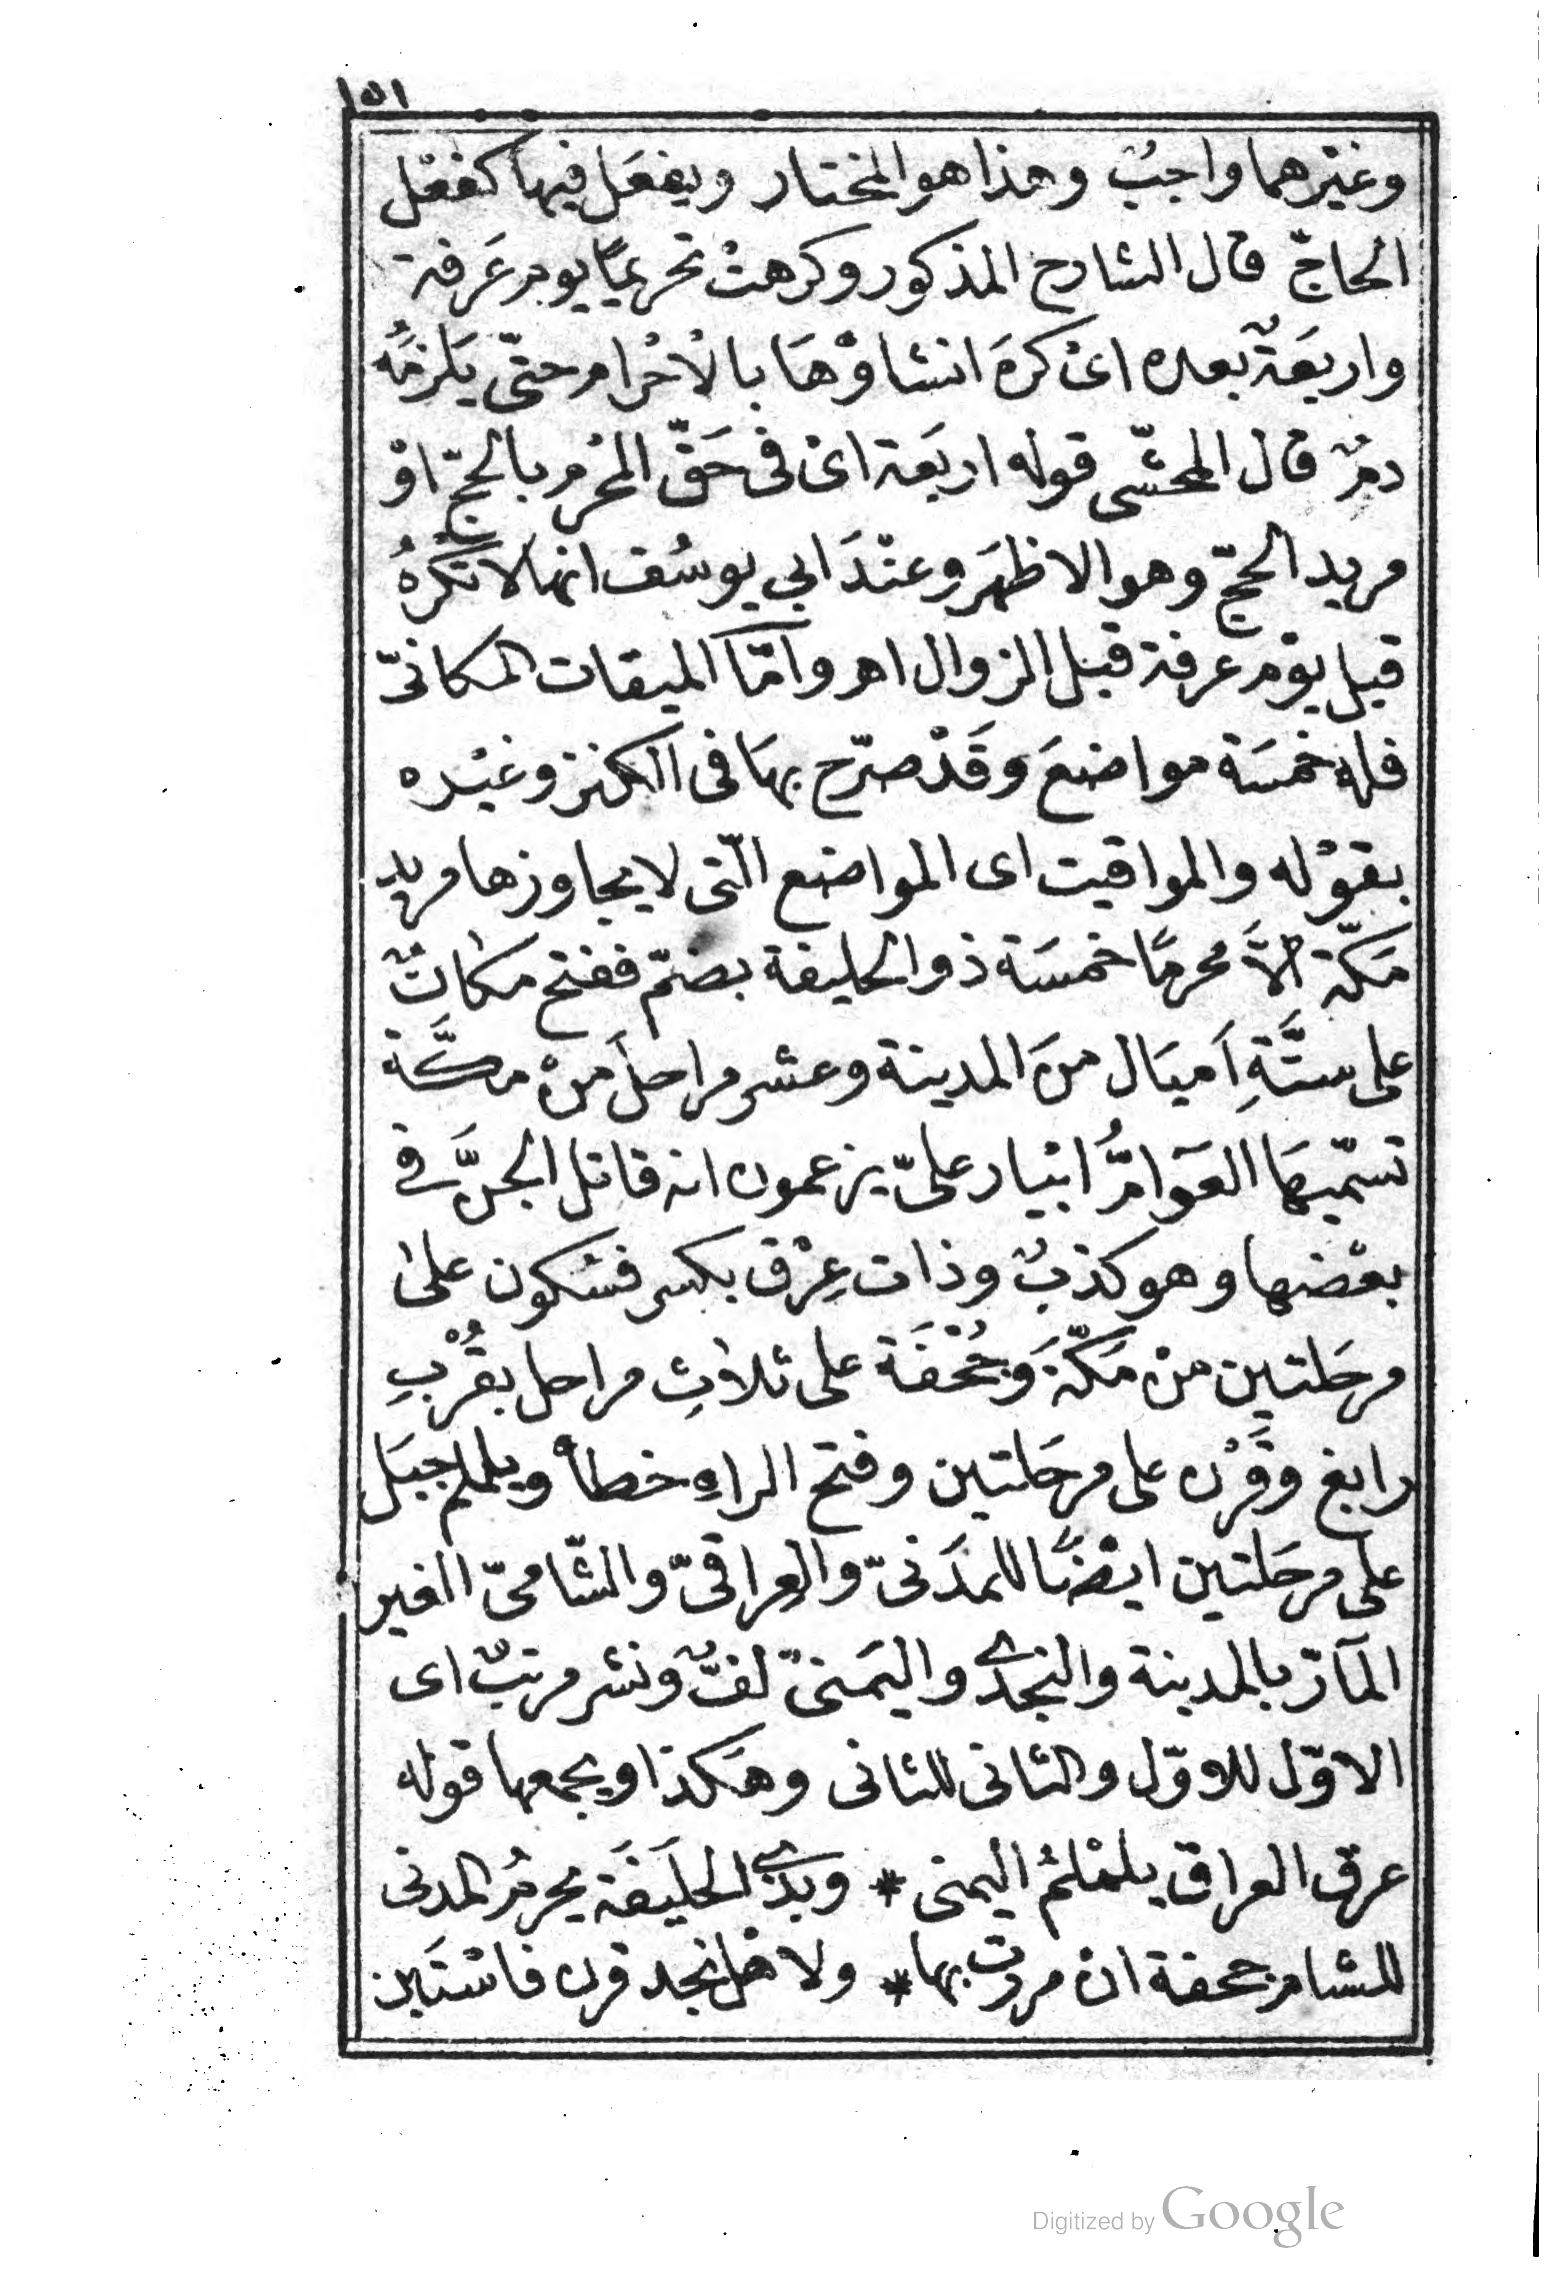 ١٥١
وغيْرهما واجبٌ وهذا هو المختار ويفعَل فيها كفعْل
الحاجّ قال الشارح المذكور وكرهتْ تحريميًا يوم عَرفة
واربعَةٌ بعده اىْ كرهَ انشاوْهَا بالْاحْرام حتّى يَلزمُه
دمٌ قال المحشّى قوله اربَعة اىْ فى حَقّ المحْرم بالحجّ اوْ
مريد الحجّ وهو الاظهَر وعنْدَ ابي يوسُف انها لا تكْرهُ
قبل يوْم عرفة قبل الزوال اهـ وامّا الميقات المكانىّ
فله خمسَة مواضعَ وقَدْ صرّح بهَا فى الكنز وغيْره
بقوْله والمواقيت اى المواضع الّتى لا يجاوزها مريد
مَكّة الاَّ محرمًا خمسَة ذو الحليفة بضمّ ففتح مكانٌ
على ستَّةِ اَميَال منَ المدينة وعشر مراحلَ منْ مكَّة
تسمّيهَا العَوامُّ ابْيار علىّ يزعمون انه قاتل الجنَّ فى
بعْضها وهو كذبٌ وذات عِرْق بكسر فسْكون على
مرحَلتين منْ مَكّةَ وَجُحْفَة على ثلاثِ مراحل بقُرْبِ
رابغ وقَرْن على مرحَلتين وفتح الراءِ خطأ ويلملم جبَل
على مرحَلتين ايضًا للمَدَنىّ والعِراقىّ والشّامىّ الغير
المآرّ بالمدينة والنجدى واليَمنىّ لفٌّ ونشر مرتبٌ اى
الاوّل للاوّل والثانى للثانى وهَكذا ويجمعها قوله
عرق العراق يلمْلمُ اليمنى * وبذى الحلَيفَة يحرمُ المدنى
للشام جحفة انْ مررت بها * ولاهْل نجد قرن فاسْتَبِن
Digitized by Google